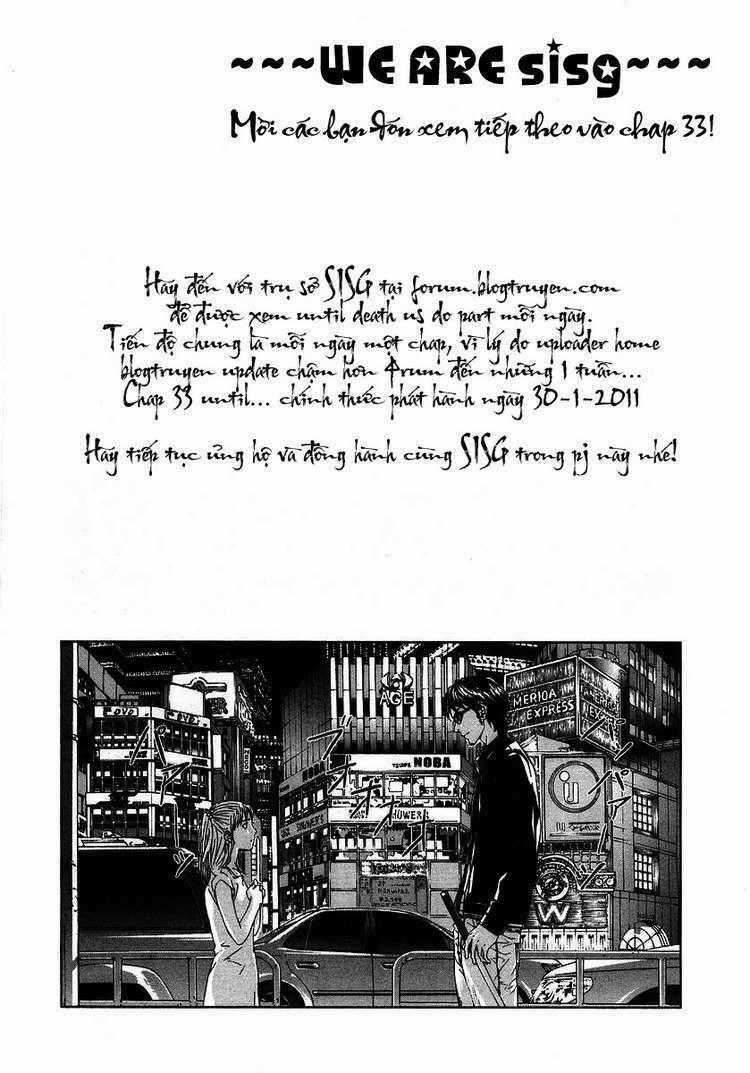 ~~~WE ARE sisg~~~
Mời các bạn đón xem tiếp theo vào chap 33!
Hãy đến với trụ sở SISG tại forum.blogtruyen.com
để được xem until death us do part mỗi ngày.
Tiến độ chung là mỗi ngày một chap, vì lý do uploader home
blogtruyen update chậm hơn 4rum đến những 1 tuần...
Chap 33 until... chính thức phát hành ngày 30-1-2011
Hãy tiếp tục ủng hộ và đồng hành cùng SISG trong pj này nhé!
AGE
DVD
DVD
NOBA
NOBA
MERIOA
EXPRESS
iu
W
パパァ
ブオオオ
パァ